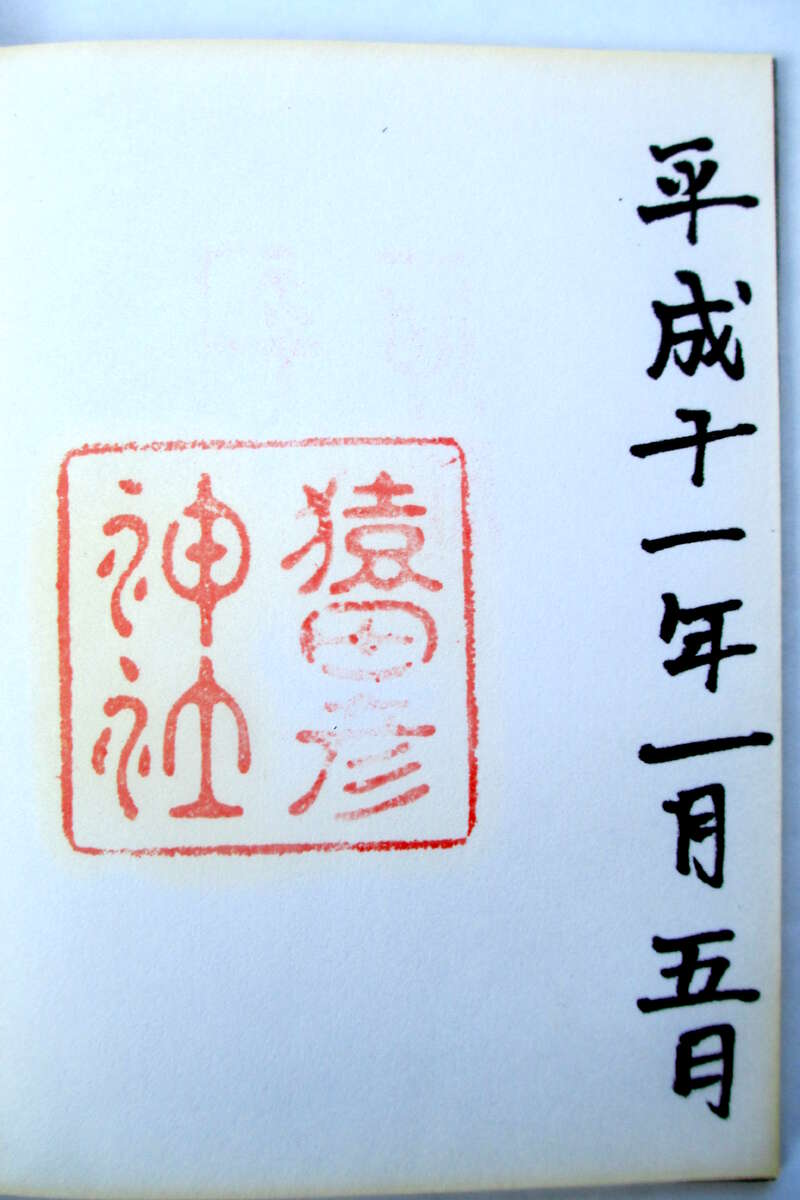 平成十一年一月五日
猿田彦
神社